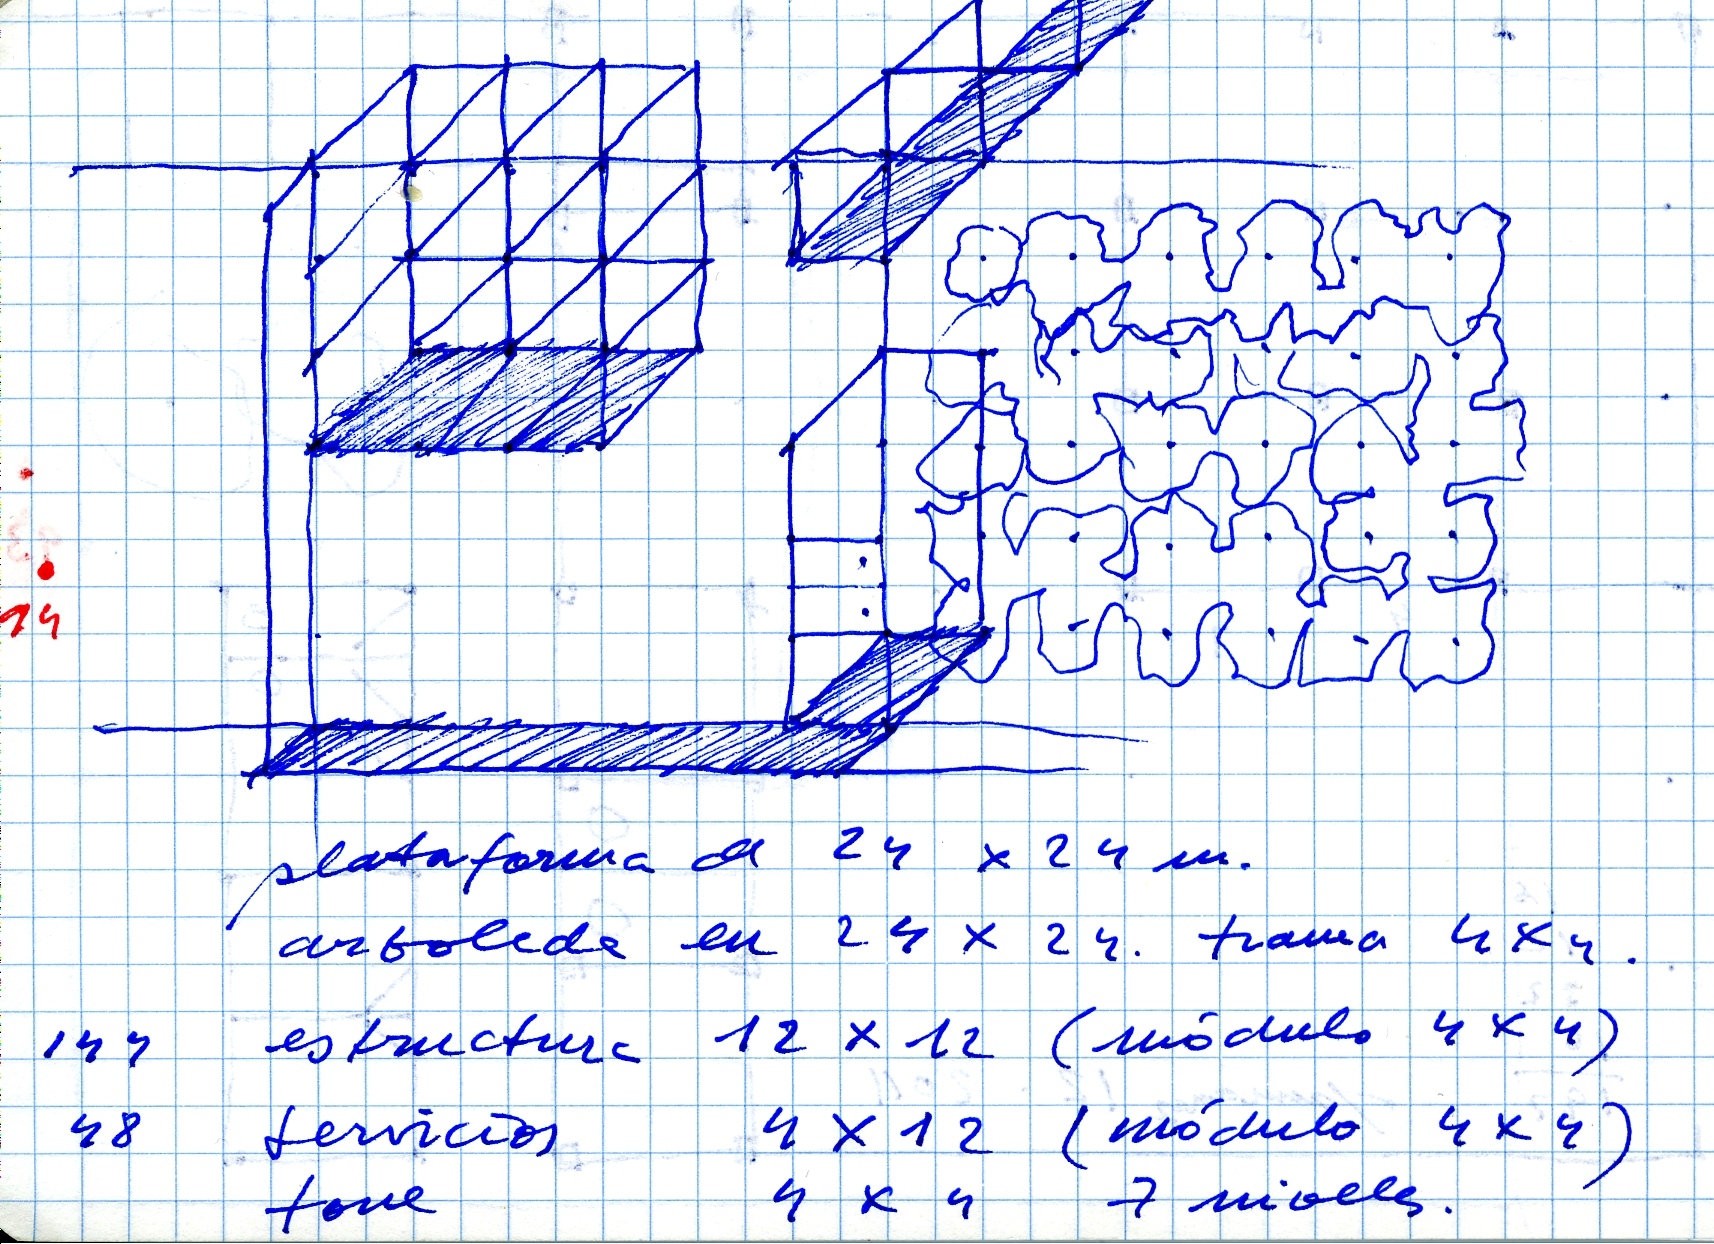 94
plataforma de 24 x 24 m.
arboleda en 24 x 24. trama 4x4.
144 estructura 12 x 12 (módulo 4x4)
48 servicios 4 x 12 (módulo 4x4)
torre 4 x 4 7 niveles.